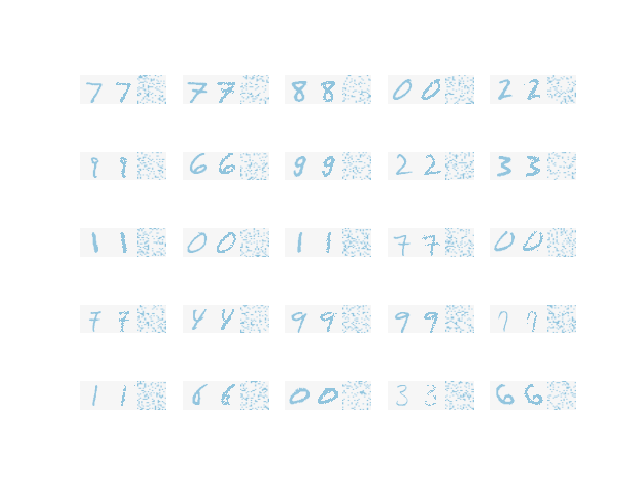 7 7 7 7 8 8 0 0 2 2
9 9 6 6 9 9 2 2 3 3
1 1 0 0 1 1 7 7 0 0
7 7 4 4 9 9 9 9 7 7
1 1 6 6 0 0 3 3 6 6